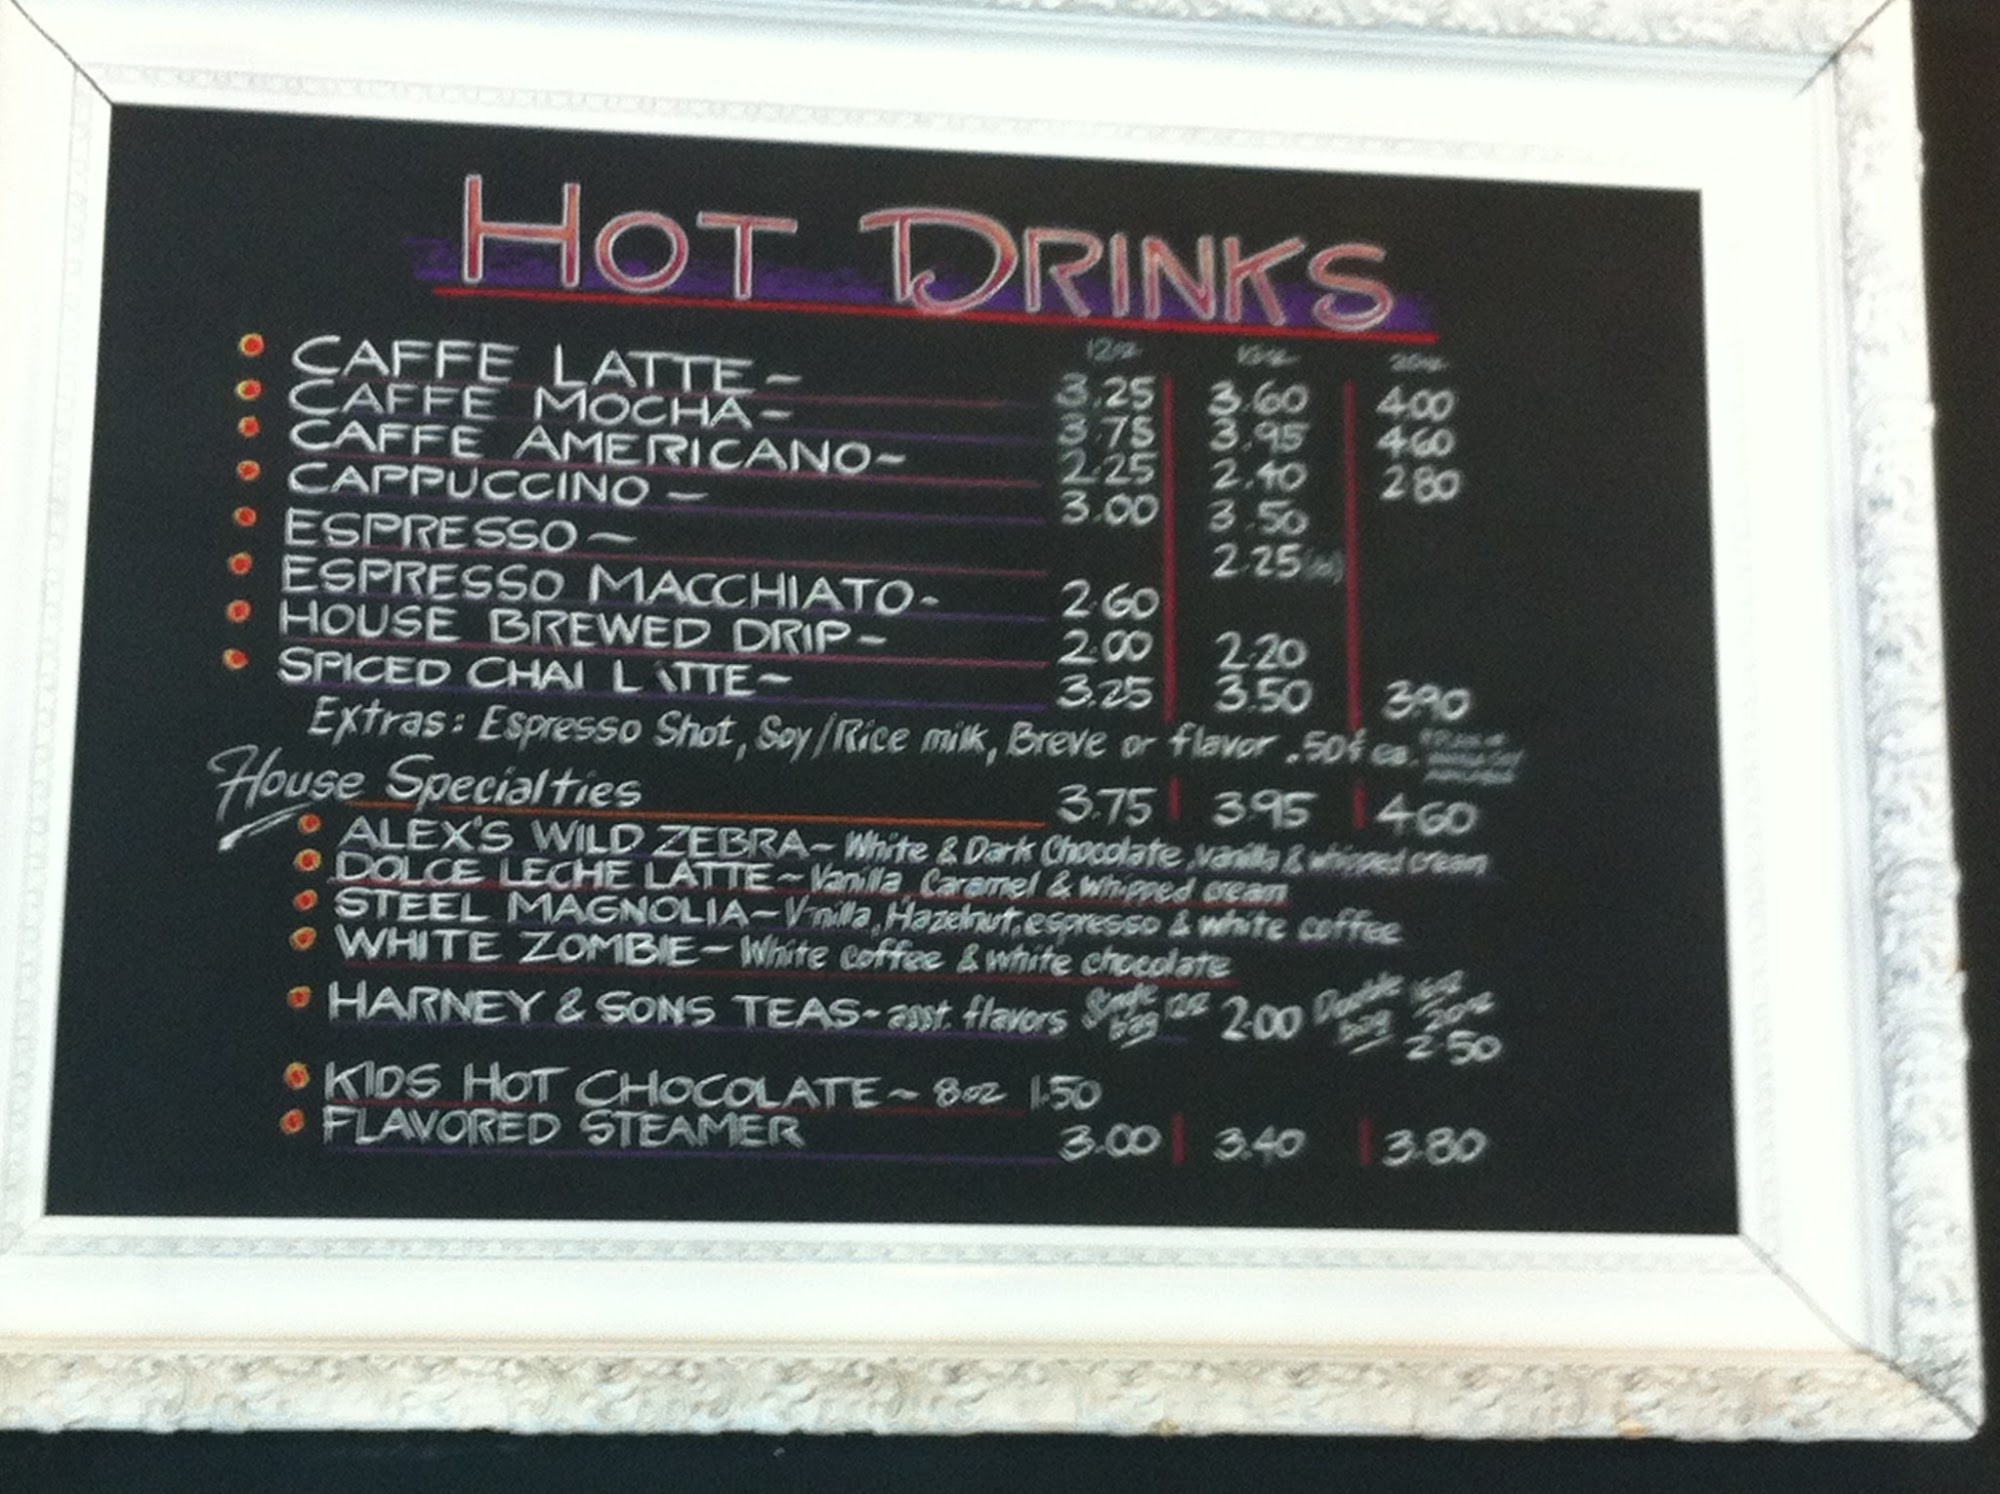 HOT DRINKS
12oz 20oz
CAFFE LATTE~ 3.25 3.60 4.00
CAFFE MOCHA~ 3.75 3.95 4.60
CAFFE AMERICANO~ 2.25 2.40 2.80
CAPPUCCINO~ 3.00 3.50
ESPRESSO~ 2.25
ESPRESSO MACCHIATO~ 2.60
HOUSE BREWED DRIP~ 2.00 2.20
SPICED CHAI LATTE~ 3.25 3.50 3.90
Extras: Espresso Shot, Soy/Rice milk, Breve or flavor .50¢ ea.
House Specialties 3.75 3.95 4.60
ALEX'S WILD ZEBRA~ White & Dark Chocolate, vanilla & whipped cream
DOLCE LECHE LATTE~ Vanilla, Caramel & whipped cream
STEEL MAGNOLIA~ Vanilla, Hazelnut, espresso & white coffee
WHITE ZOMBIE~ White coffee & white chocolate
HARNEY & SONS TEAS~ asst. flavors Single bag 12oz 2.00 Double bag 16oz 20oz 2.50
KIDS HOT CHOCOLATE~ 8oz 1.50
FLAVORED STEAMER 3.00 3.40 3.80